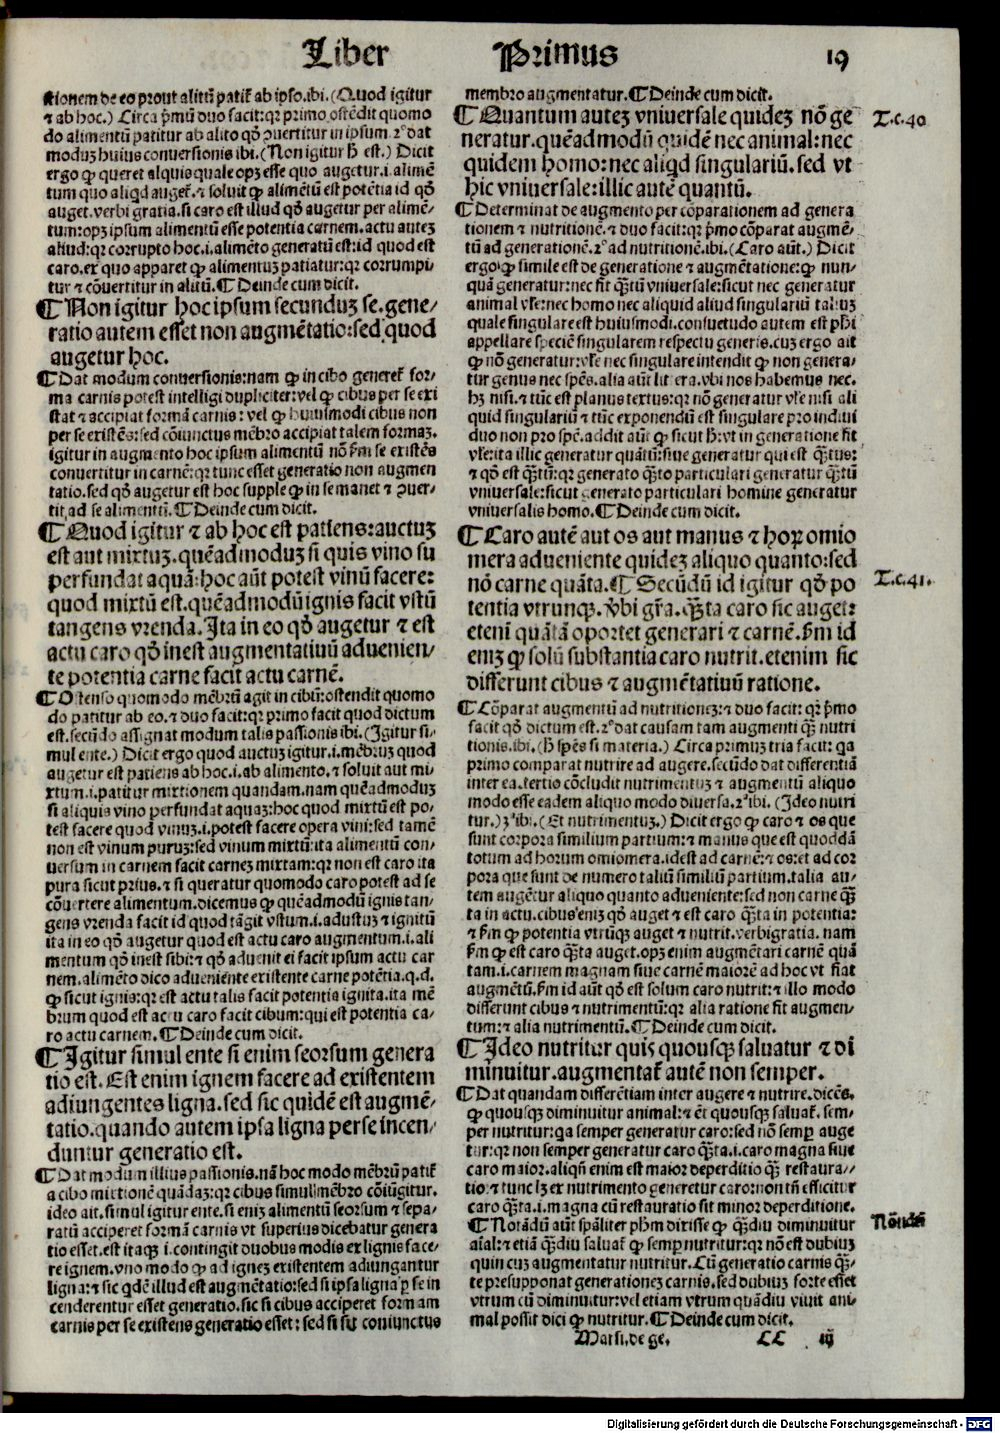 Liber Primus 19
ctionem de eo prout alitū patit̃ ab ipso.ibi.(Quod igitur
⁊ ab hoc.) Circa p̄mū duo facit:qꝛ primo ostēdit quomo
do alimentū patitur ab alito qd̄ ꝯuertitur in ipsum 2º dat
moduꝫ huius conuersionis ibi.(Non igitur h̄ est.) Dicit
ergo ꝙ queret alquis quale opꝫ esse quo augetur.i.alimē
tum quo aliqd auget̃.⁊ soluit ꝙ alimētū est potētia id qd̄
auget.verbi gratia.si caro est illud qd̄ augetur per alimē/
tum:opꝫ ipsum alimentū esse potentia carnem.actu auteꝫ
aliud:qꝛ corrupto hoc.i.alimēto generatū est:id quod est
caro.ex quo apparet ꝙ alimentuꝫ patiatur:qꝛ corrumpi/
tur ⁊ cōuertitur in alitū.¶Deinde cum dicit.
¶Non igitur hoc ipsum secunduꝫ se.gene/
ratio autem esset non augmētatio:sed quod
augetur hoc.
¶Dat modum conuersionis:nam ꝙ in cibo generet̃ for/
ma carnis potest intelligi dupliciter:vel ꝙ cibus per se exi
stat ⁊ accipiat formā carnis: vel ꝙ huiusmodi cibus non
per se existēs:sed cōiunctus mēbro accipiat talem formaꝫ.
igitur in augmento hoc ipsum alimentū nō s̄m se existēs
conuertitur in carnē:qꝛ tunc esset generatio non augmen
tatio.sed qd̄ augetur est hoc supple ꝙ in se manet ⁊ ꝯuer/
tit ad se alimentū.¶Deinde cum dicit.
¶Quod igitur ⁊ ab hoc est patiens:auctuꝫ
est aut mixtuꝫ.quēadmoduꝫ si quis vino su
perfundat aquā:hoc aūt potest vinū facere:
quod mixtū est.quēadmodū ignis facit vstū
tangens vrenda.Ita in eo qd̄ augetur ⁊ est
actu caro qd̄ inest augmentatiuū aduenien/
te potentia carne facit actu carnē.
¶Ostenso quomodo mēbrū agit in cibū:ostendit quomo
do patitur ab eo.⁊ duo facit:qꝛ primo facit quod dictum
est.secūdo assignat modum talis passionis ibi.(Igitur si/
mul ente.) Dicit ergo quod auctuꝫ igitur.i.mēbruꝫ quod
augetur est patiens ab hoc.i.ab alimento.⁊ soluit aut mi/
xtum.i.patitur mixtionem quandam.nam quēadmoduꝫ
si aliquis vino perfundat aquaꝫ:hoc quod mixtū est po/
test facere quod vinuꝫ.i.potest facere opera vini:sed tamē
non est vinum puruꝫ:sed vinum mixtū:ita alimentū con/
uersum in carnem facit carneꝫ mixtam:qꝛ non est caro ita
pura sicut prius.⁊ si queratur quomodo caro potest ad se
cōuertere alimentum.dicemus ꝙ quēadmodū ignis tan/
gens vrenda facit id quod tāgit vstum.i.adustuꝫ ⁊ ignitū
ita in eo qd̄ augetur quod est actu caro augmentum.i.ali
mentum qd̄ inest sibi:⁊ qd̄ aduenit ei facit ipsum actu car
nem.alimēto dico adueniēte existente carne potētia.q.d.
ꝙ sicut ignis:qꝛ est actu talis facit potentia ignita.ita mē
brum quod est actu caro facit cibum:qui est potentia ca/
ro actu carnem.¶Deinde cum dicit.
¶Igitur simul ente si enim seorsum genera
tio est.Est enim ignem facere ad existentem
adiungentes ligna.sed sic quidē est augmē/
tatio.quando autem ipsa ligna per se incen/
duntur generatio est.
¶Dat modum illius passionis.nā hoc modo mēbrū patit̃
a cibo mixtionē quādaꝫ:qꝛ cibus simul mēbro cōiūgitur.
ideo ait.simul igitur ente.si eniꝫ alimentū seorsum ⁊ sepa/
ratū acciperet formā carnis vt superius dicebatur genera
tio esset.est itaqꝫ i.contingit duobus modis ex lignis face/
re ignem.vno modo ꝙ ad igneꝫ existentem adiungantur
ligna:⁊ sic qdē illud est augmētatio:sed si ipsa ligna ꝑ se in
cenderentur esset generatio.sic si cibus acciperet formam
carnis per se existens generatio esset: sed si sit coniunctus
membro augmentatur.¶Deinde cum dicit.
¶Quantum auteꝫ vniuersale quideꝫ nō ge T.c.40
neratur.quēadmodū quidē nec animal:nec
quidem homo:nec aliqd singulariū.sed vt
hic vniuersale:illic autē quantū.
¶Determinat de augmento per cōparationem ad genera
tionem ⁊ nutritionē.⁊ duo facit:qꝛ p̄mo cōparat augmē/
tū ad generationē.2º ad nutritionē.ibi.(Caro aūt.) Dicit
ergo ꝙ simile est de generatione ⁊ augmētatione:ꝙ nun/
quā generatur:nec fit q̄tū vniuersale:sicut nec generatur
animal vl̄e:nec homo nec aliquid aliud singulariū taliuꝫ
quale singulare est huiusmodi.consuetudo autem est ph̄i
appellare speciē singularem respectu generis.cuꝫ ergo ait
ꝙ nō generatur:vl̄e nec singulare intendit ꝙ non genera/
tur genus nec spēs.alia aūt litera.vbi nos habemus nec.
hꝫ nisi.⁊ tūc est planus textus:qꝛ nō generatur vl̄e nisi ali
quid singulariū ⁊ tūc exponendū est singulare pro indiui
duo non pro spē.addit aūt ꝙ sicut h̄:vt in generatione fit
vl̄e:ita illic generatur quātū:siue generatur qui est q̄tus:
⁊ qd̄ est q̄tū:qꝛ generato q̄to particulari generatur q̄tū
vniuersale:sicut generato particulari homine generatur
vniuersalis homo.¶Deinde cum dicit.
¶Caro autē aut os aut manus ⁊ hoꝝ omio
mera adueniente quideꝫ aliquo quanto:sed
nō carne quāta.¶Secūdū id igitur qd̄ po T.c.41.
tentia vtrunqꝫ.vbi gr̄a.q̄ta caro sic auget:
etenī quātā oportet generari ⁊ carnē.s̄m id
eniꝫ ꝙ solū substantia caro nutrit.etenim sic
differunt cibus ⁊ augmētatiuū ratione.
¶Cōparat augmentū ad nutritioneꝫ:⁊ duo facit: qꝛ p̄mo
facit qd̄ dictum est.2º dat causam tam augmenti q̄ nutri
tionis.ibi.(h̄ spēs si materia.) Circa primuꝫ tria facit: qa
primo comparat nutrire ad augere.secūdo dat differentiā
inter ea.tertio cōcludit nutrimentuꝫ ⁊ augmentū aliquo
modo esse eadem aliquo modo diuersa.2ª ibi. (Ideo nutri
tur.) 3ª ibi.(Et nutrimentuꝫ.) Dicit ergo ꝙ caro ⁊ os que
sunt corpora similium partium:⁊ manus que est quoddā
totum ad horum omiomera.idest ad carnē:⁊ os:et ad cor
pora que sunt de numero taliū similiū partium.talia au/
tem augētur aliquo quanto adueniente:sed non carne q̄
ta in actu.cibus eniꝫ qd̄ auget ⁊ est caro q̄ta in potentia:
⁊ s̄m ꝙ potentia vtrūqꝫ auget ⁊ nutrit.verbigratia. nam
s̄m ꝙ est caro q̄ta auget.opꝫ enim augmētari carnē quā
tam.i.carnem magnam siue carnē maiorē ad hoc vt fiat
augmētū.s̄m id aūt qd̄ est solum caro nutrit:⁊ illo modo
differunt cibus ⁊ nutrimentū:qꝛ alia ratione fit augmen/
tum:⁊ alia nutrimentū.¶Deinde cum dicit.
¶Ideo nutritur quis quousqꝫ saluatur ⁊ di
minuitur.augmentat̃ autē non semper.
¶Dat quandam differētiam inter augere ⁊ nutrire.dicēs.
ꝙ quousqꝫ diminuitur animal:⁊ ēt quousqꝫ saluat̃. sem/
per nutritur:qa semper generatur caro:sed nō semꝑ auge
tur:qꝛ non semper generatur caro q̄ta.i.caro magna siue
caro maior.aliqn̄ enim est maior deperditio q̄ꝫ restaura//
tio:⁊ tunc lꝫ ex nutrimento generetur caro:non tn̄ efficitur
caro q̄ta.i.magna cū restauratio sit minor deperditione.
¶Notādū aūt sp̄aliter ph̄m dixisse ꝙ q̄diu diminuitur Nōndū
aīal:⁊ etiā q̄diu saluat̃ ꝙ semꝑ nutritur:qꝛ nō est dubiuꝫ
quin cuꝫ augmentatur nutritur.Cū generatio carnis q̄/
te presupponat generationeꝫ carnis.sed dubiuꝫ forte esset
vtrum cū diminuitur:vel etiam vtrum quādiu viuit ani/
mal possit dici ꝙ nutritur.¶Deinde cum dicit.
Marsi.de ge. CC iij
Digitalisierung gefördert durch die Deutsche Forschungsgemeinschaft - DFG